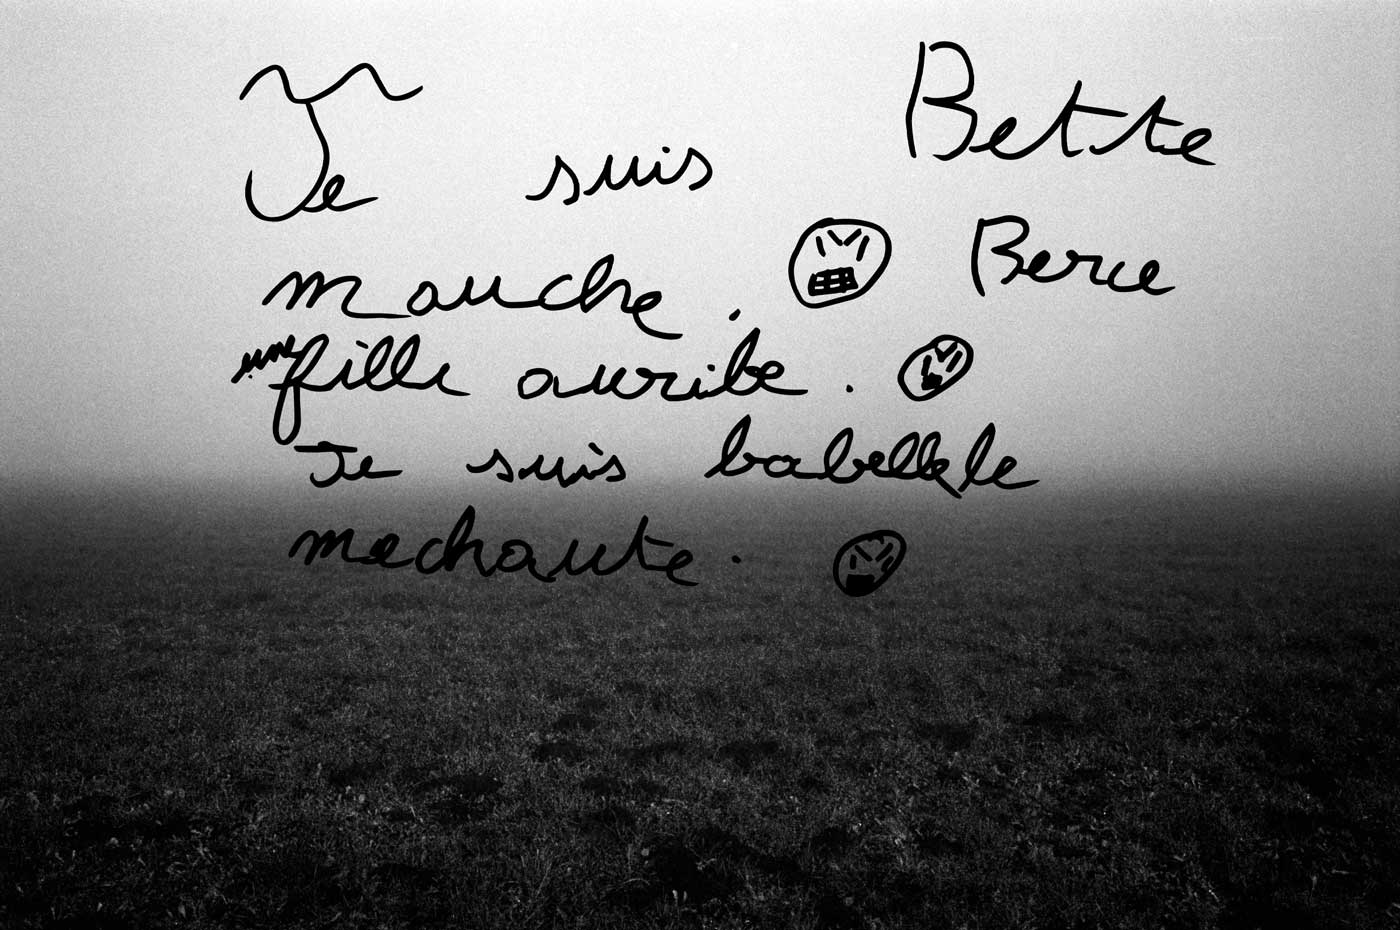 Je suis Bette
mouche. Berce
une fille auribe.
Je suis babellele
mechaute.